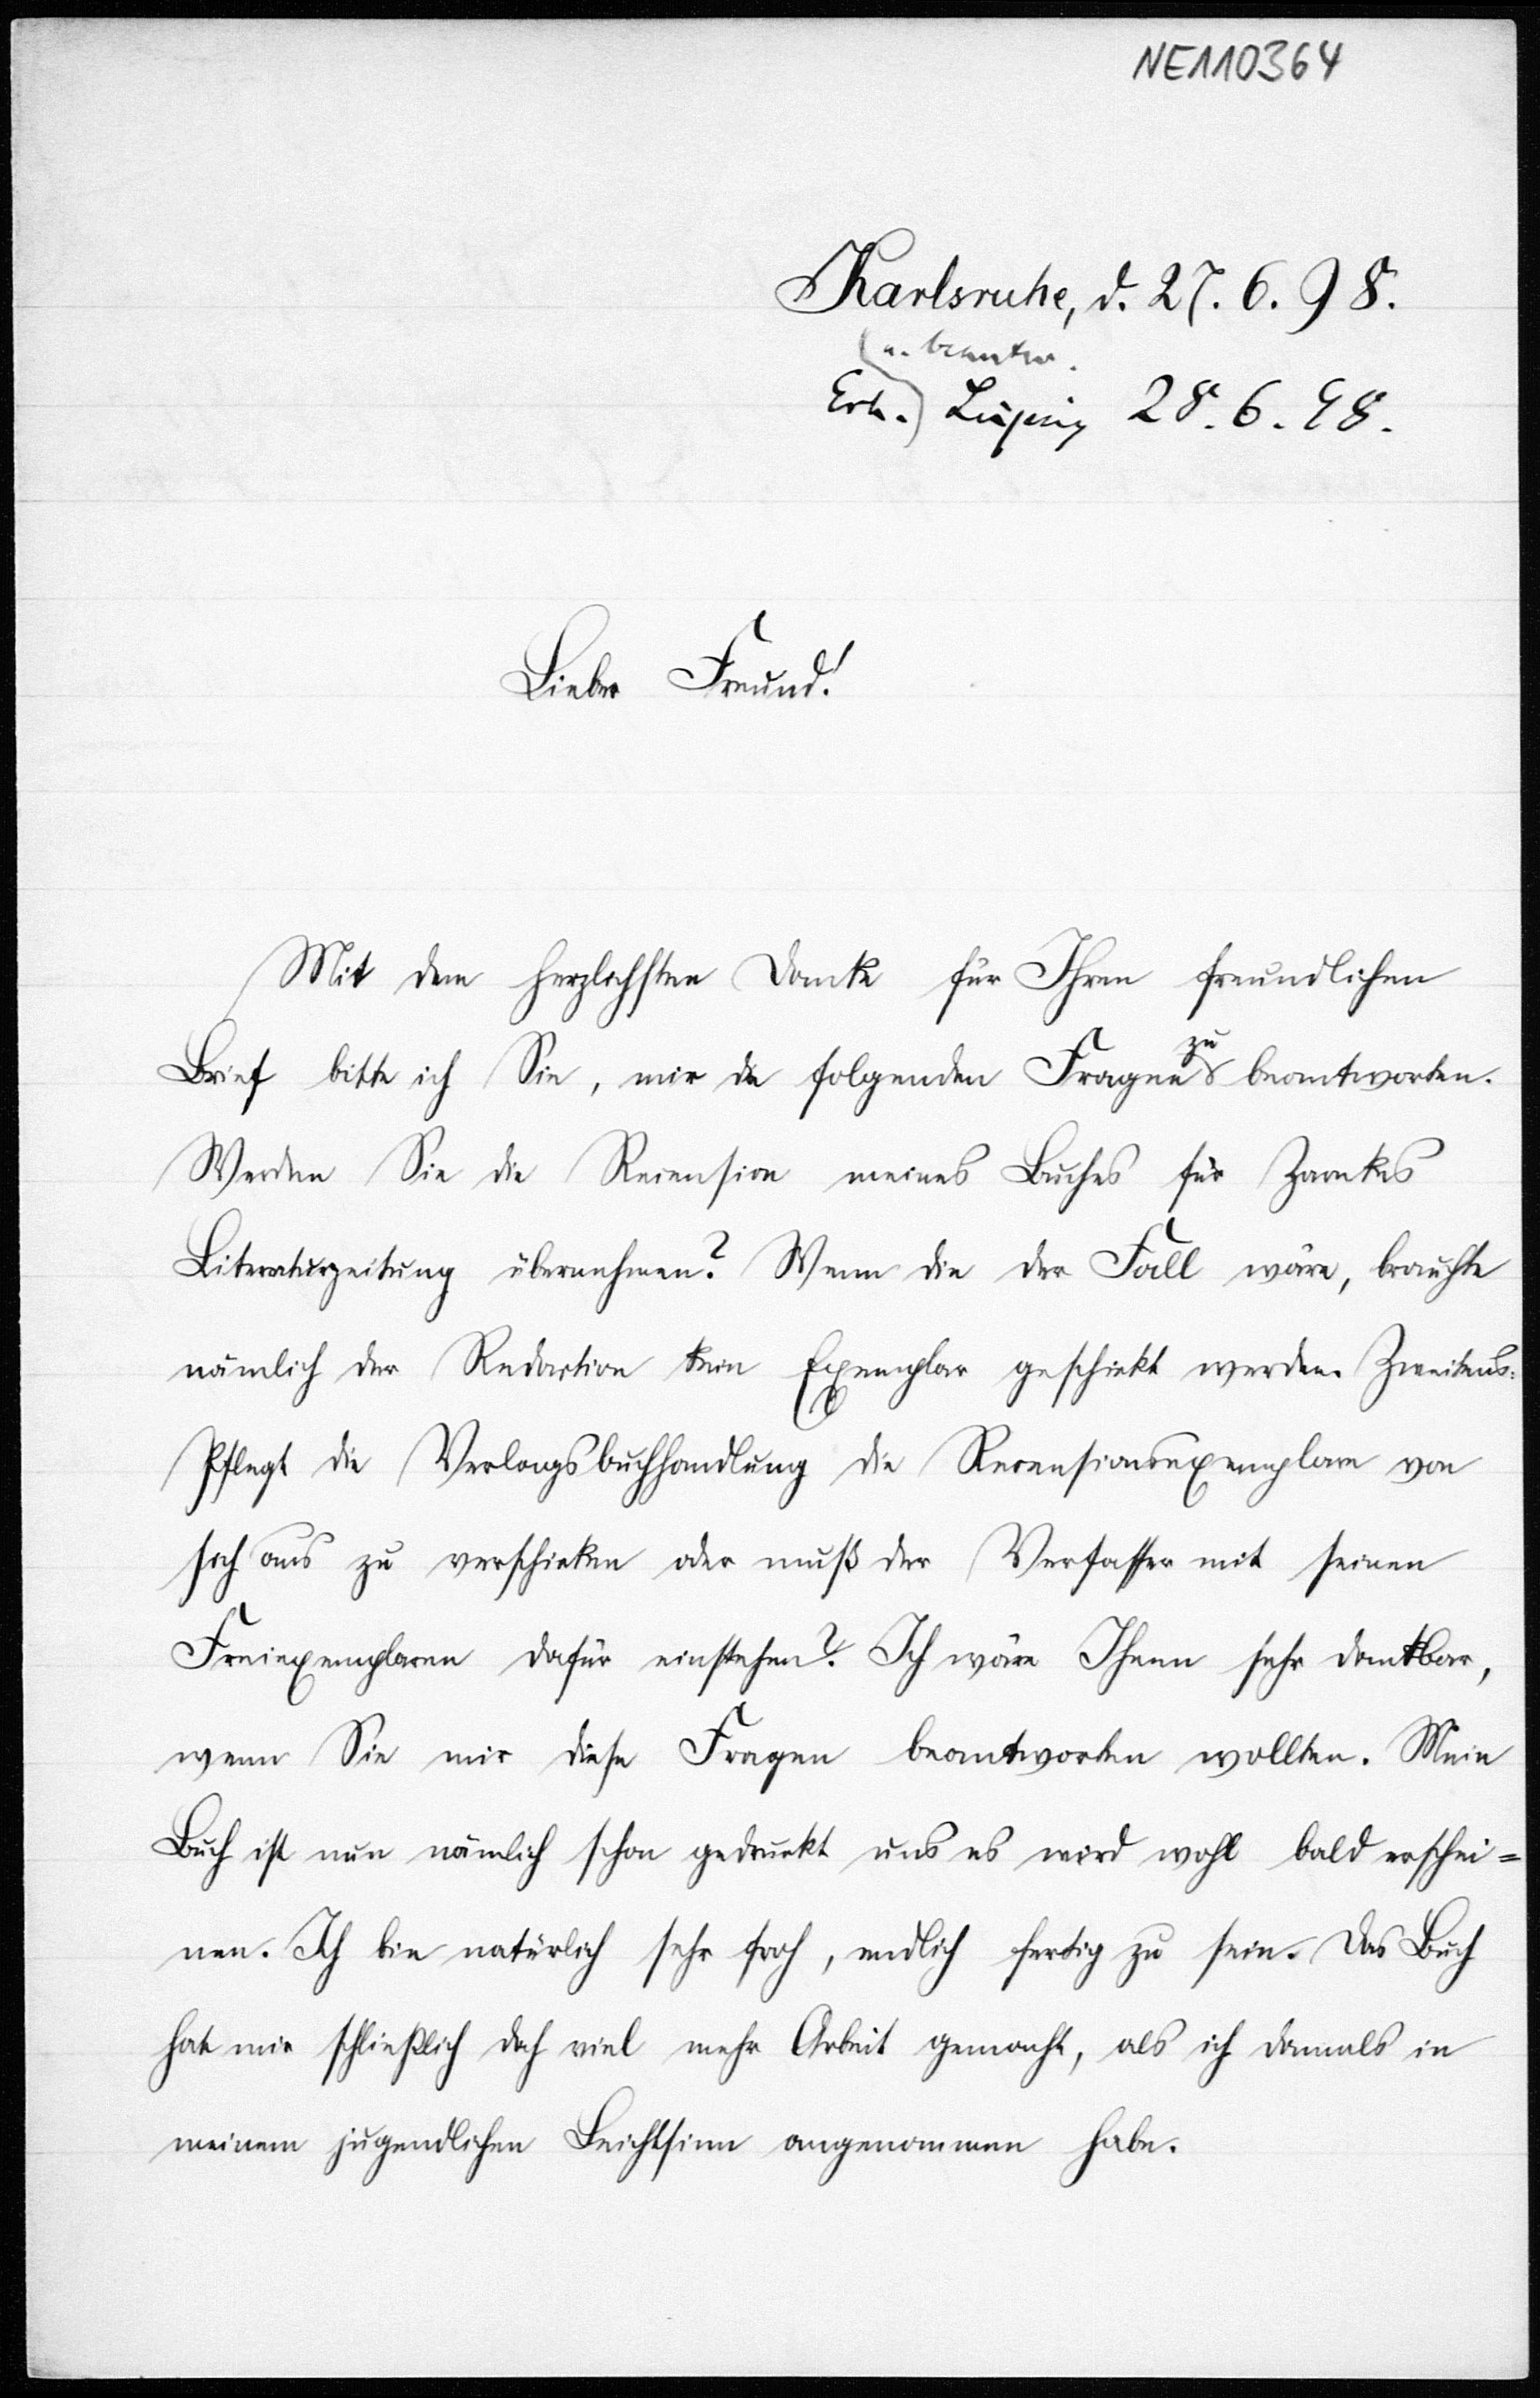 NE110364
Karlsruhe, d. 27. 6. 98.
(u. beantw.
Erh.) Leipzig 28. 6. 98.
Lieber Freund!
Mit dem herzlichsten Danke für Ihren freundlichen
Brief bitte ich Sie, mir die folgenden Fragen zu beantworten.
Werden Sie die Recension meines Buches für Zarnkes
Literaturzeitung übernehmen? Wenn die der Fall wäre, brauchte
nämlich der Redaction kein Exemplar geschickt werden. Zweitens:
Pflegt die Verlagsbuchhandlung die Recensionsexemplare von
sich aus zu verschicken oder muß der Verfasser mit seinen
Freiexemplaren dafür einstehen? Ich wäre Ihnen sehr dankbar,
wenn Sie mir diese Fragen beantworten wollten. Mein
Buch ist nun nämlich schon gedruckt uns es wird wohl bald erschei=
nen. Ich bin natürlich sehr froh, endlich fertig zu sein. Das Buch
hat mir schließlich doch viel mehr Arbeit gemacht, als ich damals in
meinem jugendlichen Leichtsinn angenommen habe.